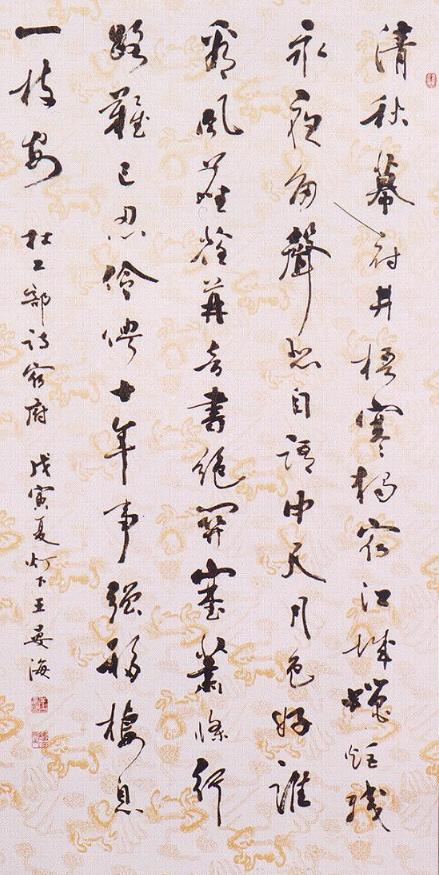 清秋幕府井梧寒獨宿江城蠟炬殘
永夜角聲悲自語中天月色好誰
看風塵荏苒音書絕關塞蕭條行
路難已忍伶俜十年事強移棲息
一枝安 杜工部詩宿府 戊寅夏灯下王晏海